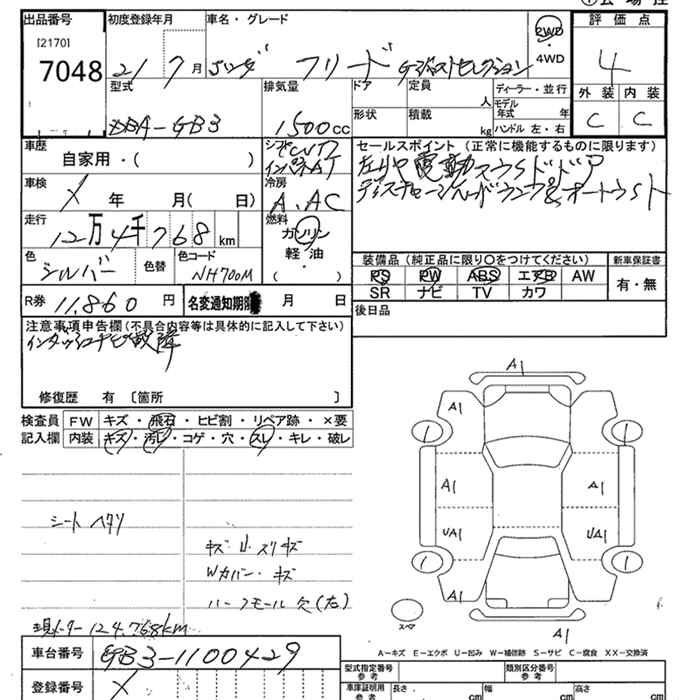 出品番号 初度登録年月 車名・グレード 評価点
[2170]
7048 21/7月 ホンダ フリード Gジャストセレクション 2WD・4WD 4
型式 排気量 ドア 定員 人 ディーラー・並行 外装 内装
DBA-GB3 1500cc 形状 積載 kg モデル年式 年 ハンドル 左・右 C C
車歴 自家用・( ) シフト CVT インパネAT セールスポイント(正常に機能するものに限ります)
左リヤ電動スライドドア
車検 X 年 月( 日) 冷房 A.AC
走行 12万4千768km 燃料 ガソリン 軽油・( )
色 シルバー 色替 色コード NH700M 装備品(純正品に限り〇をつけてください) 新車保証書
PS PW ABS エアB AW 有・無
SR ナビ TV カワ
R券 11,860円 名変通知期限 月 日 後日品
注意事項申告欄(不具合内容等は具体的に記入して下さい)
インダッシュナビ故障
修復歴 有 [箇所 ]
検査員 FW キズ・飛石・ヒビ割・リペア跡・×要
記入欄 内装 キズ・汚レ・コゲ・穴・スレ・キレ・破レ
A1
A1 A1
1 1
A1 A1
シート ヘタリ
UA1 UA1
キズ 小スリキズ
1 1
Wカバー・キズ
A1 A1
ハーフモール穴(右)
スペア
現メーター124,768km
A1
車台番号 GB3-1100429
A-キズ E-エクボ U-凹み W-補修跡 S-サビ C-腐食 XX-交換済
登録番号 X 型式指定番号 参考 類別区分番号 参考
車庫証明用 参考 長さ cm 幅 cm 高さ cm